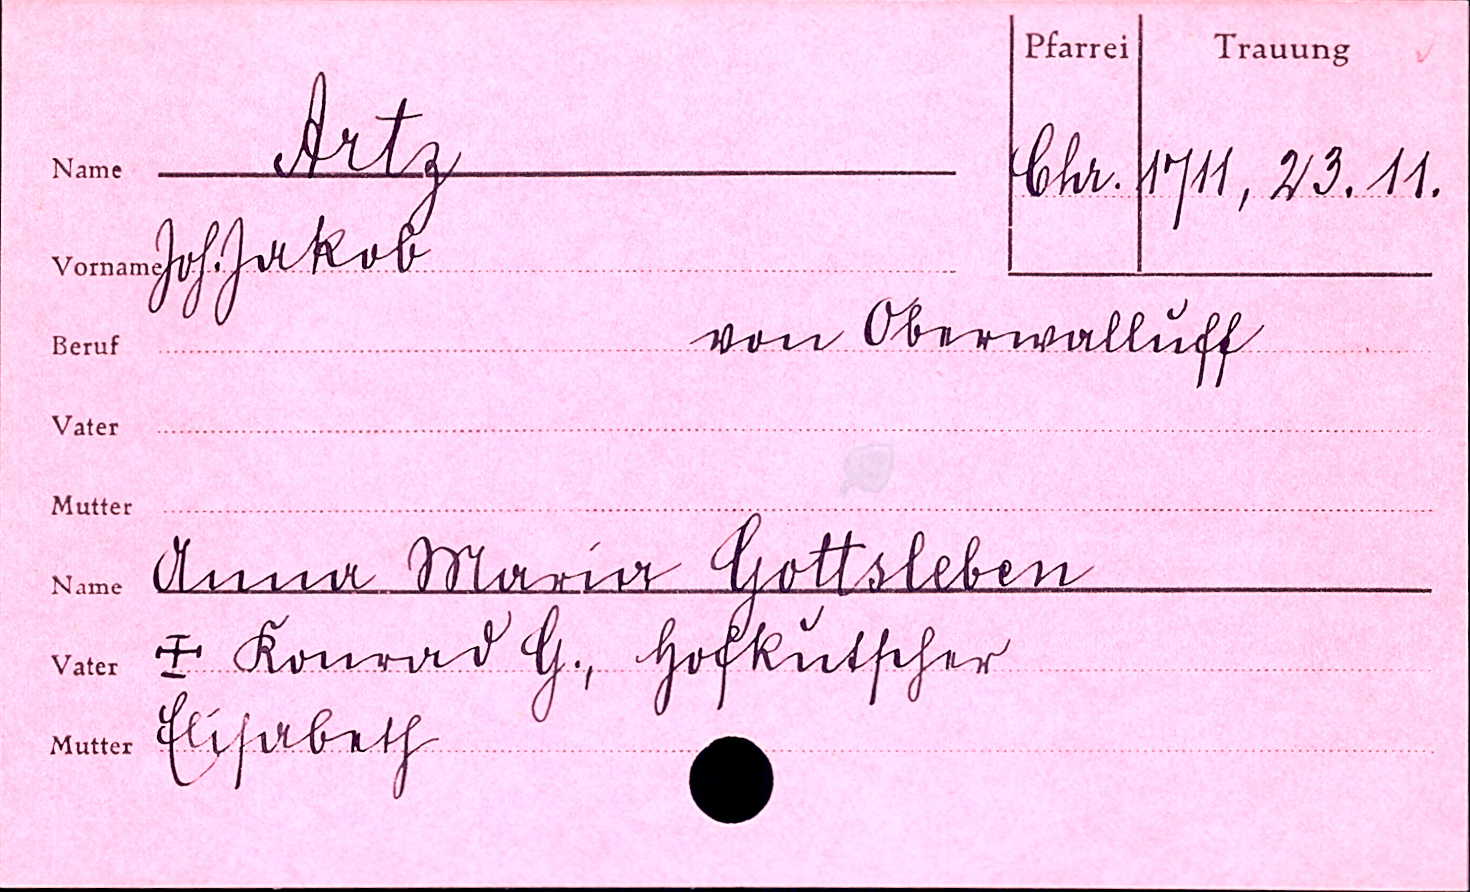 Pfarrei Trauung
Name Artz Chr. 1711, 23. 11.
Vorname Joh. Jakob
Beruf von Oberwalluff
Vater
Mutter
Name Anna Maria Gottsleben
Vater Konrad G., Hofkutscher
Mutter Elisabeth